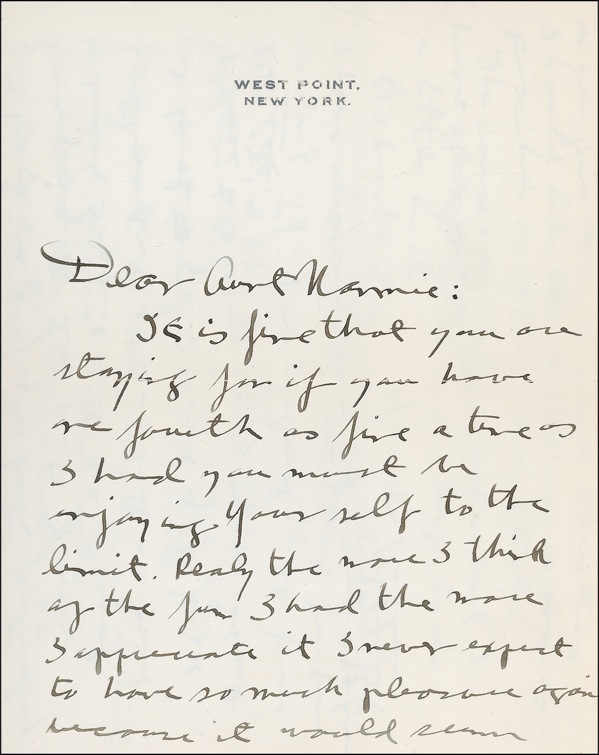 WEST POINT,
NEW YORK.
Dear Aunt Nannie:
It is fine that you are
staying for if you have
one fourth as fine a time as
I had you must be
enjoying your self to the
limit. Realy the more I think
of the fun I had the more
I appreciate it I never expect
to have so much pleasure again
because it would seem